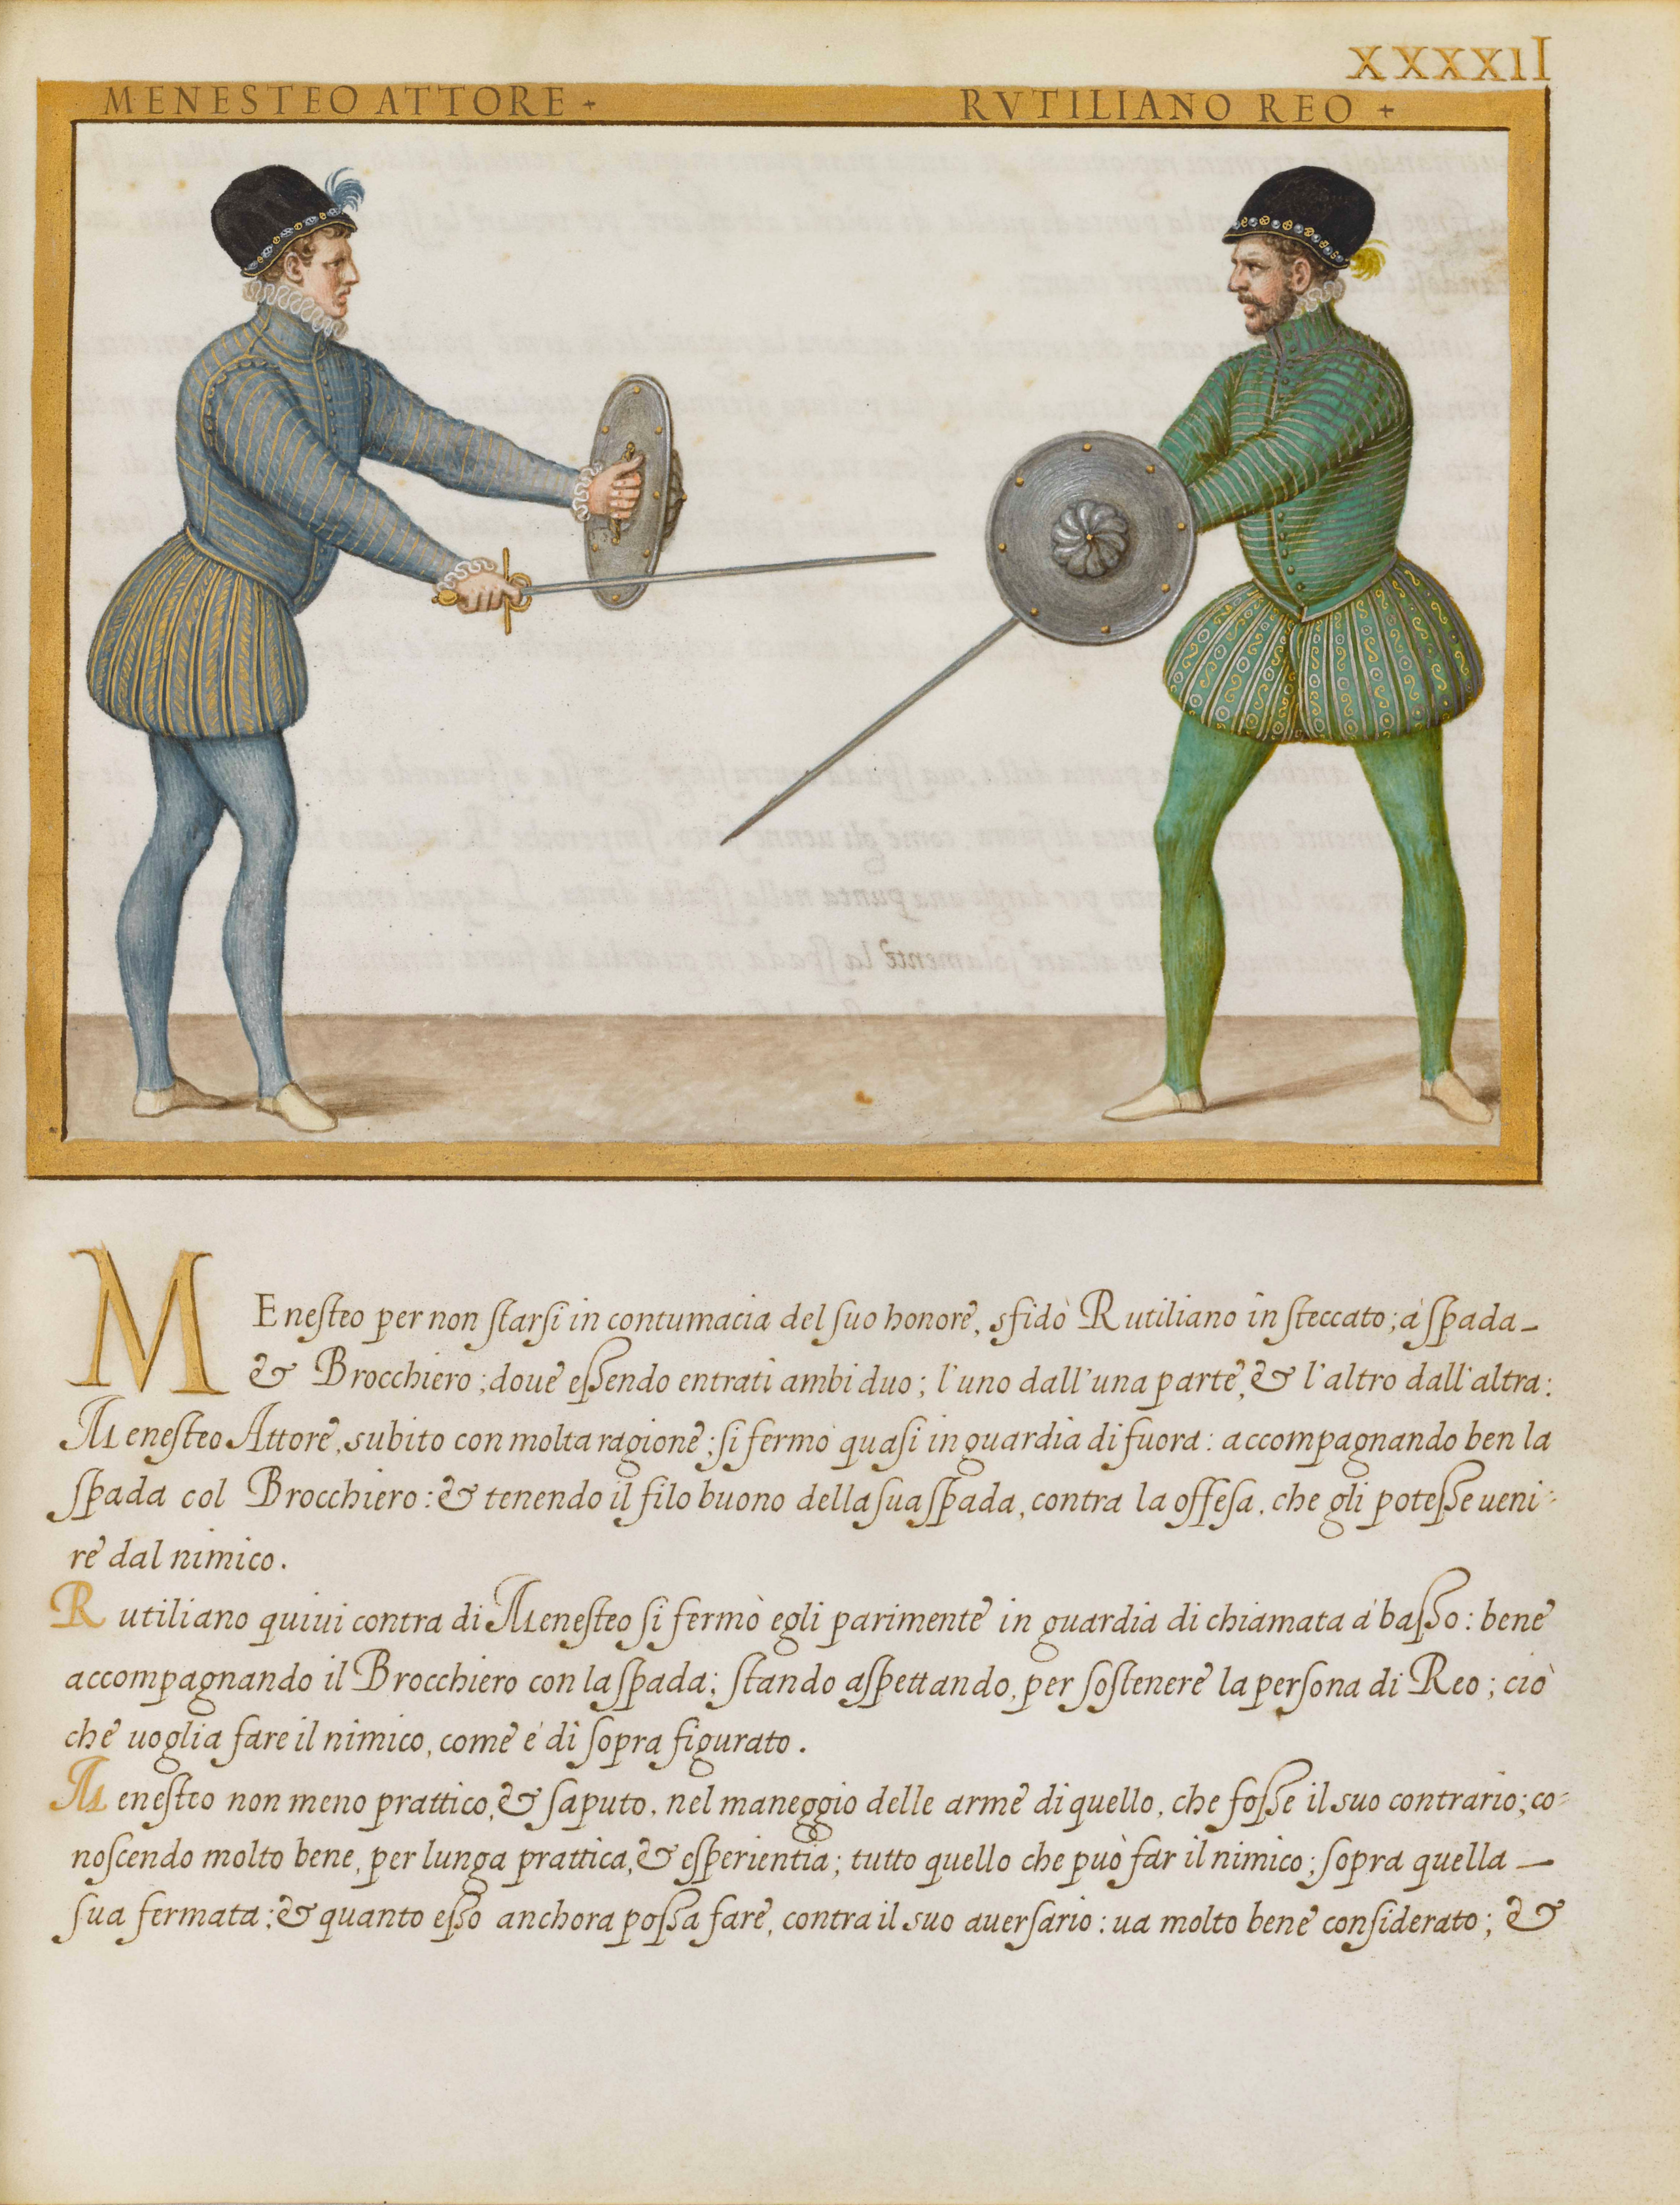 XXXXII
MENESTEO ATTORE + RVTILIANO REO +
MEneſteo per non ſtarſi in contumacia del ſuo honore, sfidò Rutiliano in ſteccato; à ſpada
& Brocchiero; doue eſſendo entrati ambi duo; l'uno dall'una parte, & l'altro dall'altra:
Meneſteo Attore, subito con molta ragione; ſi fermò quaſi in guardia di fuora: accompagnando ben la
ſpada col Brocchiero: & tenendo il filo buono della ſua ſpada, contra la offeſa, che gli poteſſe ueni-
re dal nimico.
Rutiliano quiui contra di Meneſteo ſi fermò egli parimente in guardia di chiamata à baſſo: bene
accompagnando il Brocchiero con la ſpada; ſtando aſpettando, per ſoſtenere la perſona di Reo; ciò
che uoglia fare il nimico, come è di ſopra figurato.
Meneſteo non meno prattico, & ſaputo, nel maneggio delle arme di quello, che foſſe il suo contrario; co-
noſcendo molto bene, per lunga prattica, & eſperientia; tutto quello che può far il nimico; ſopra quella
ſua fermata: & quanto eſſo anchora poſſa fare, contra il suo auerſario: ua molto bene conſiderato; &